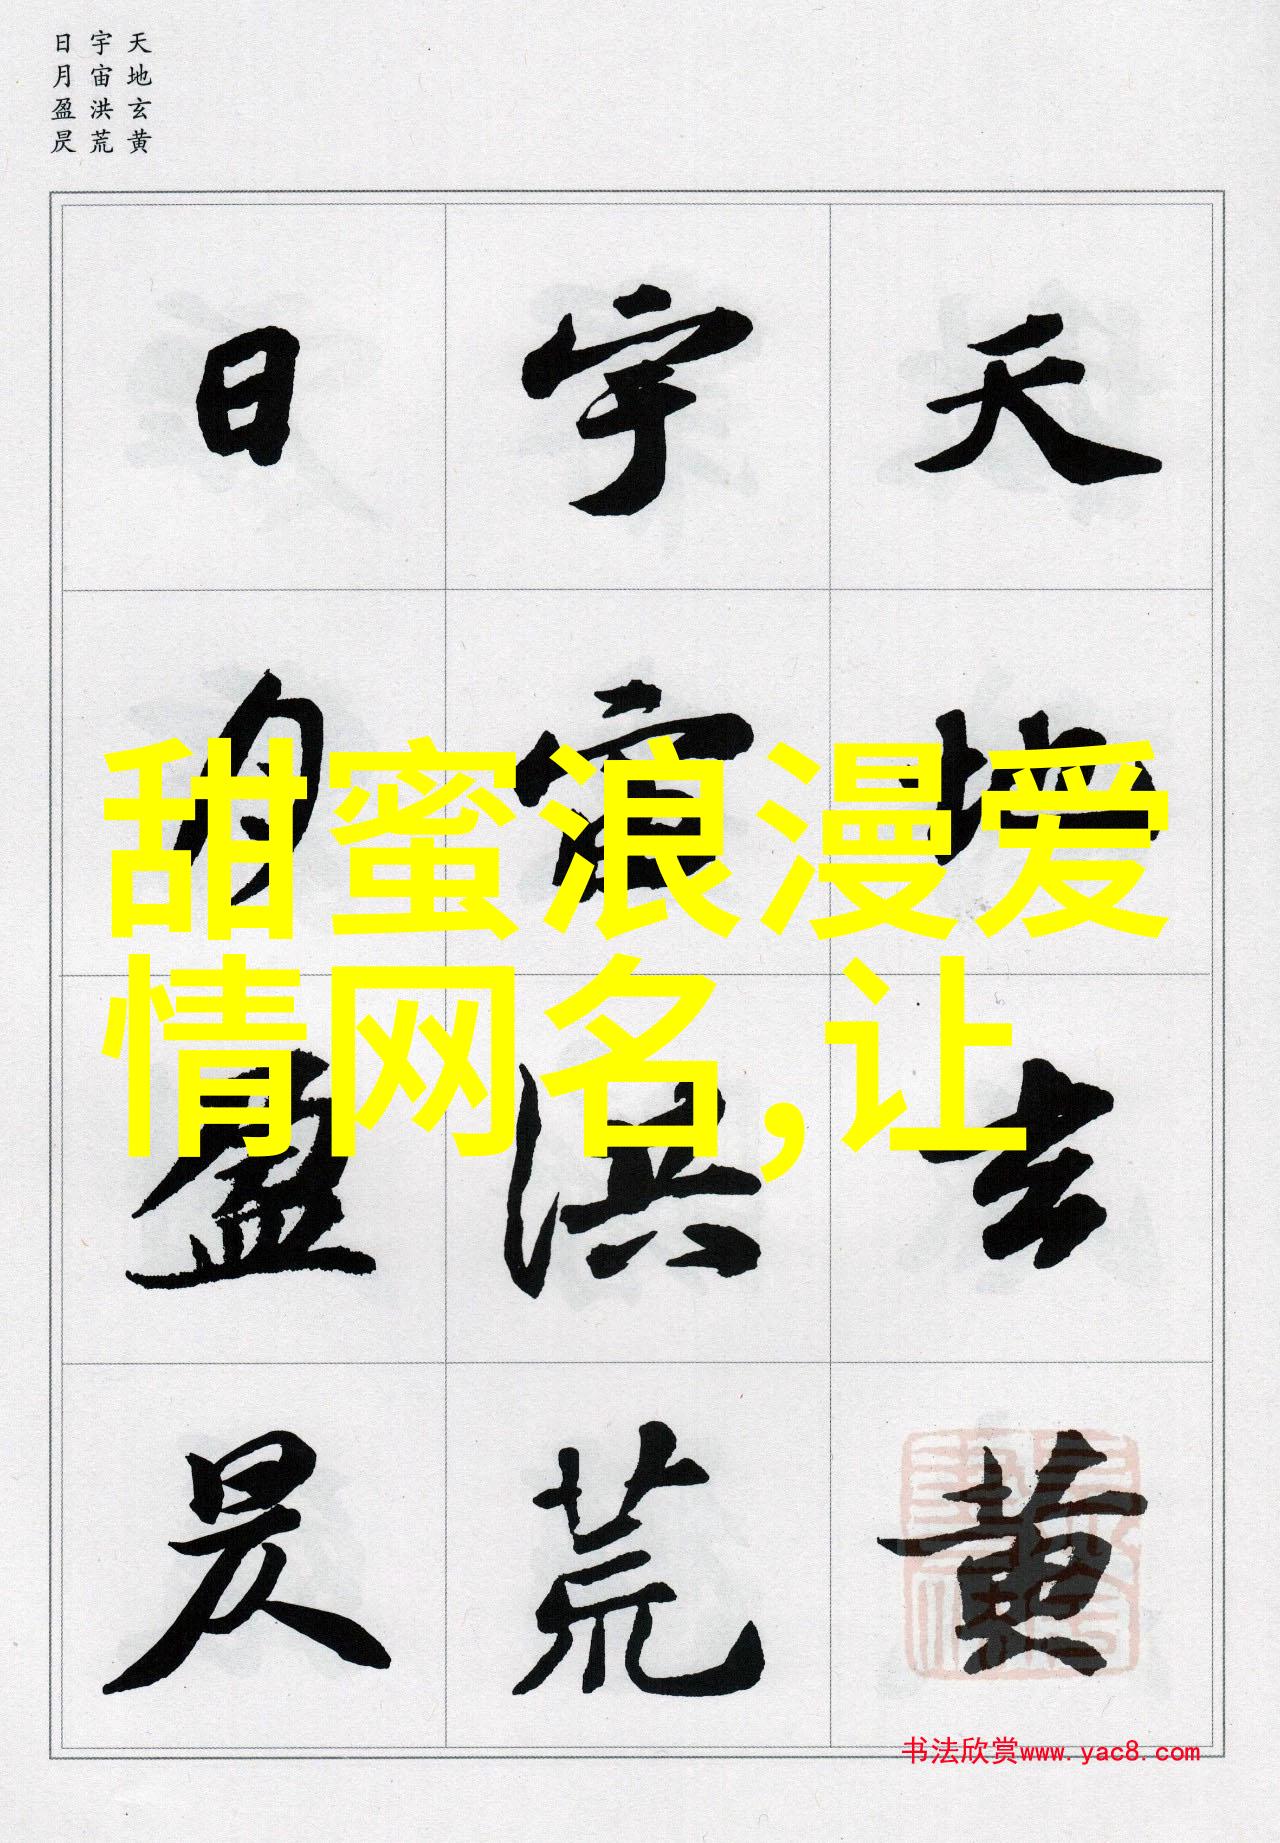 天地玄黄
宇宙洪荒
日月盈昃
天地玄黄
宇宙洪荒
日月盈昃
甜蜜浪漫爱
情网名,让
书法欣赏www.yac8.com